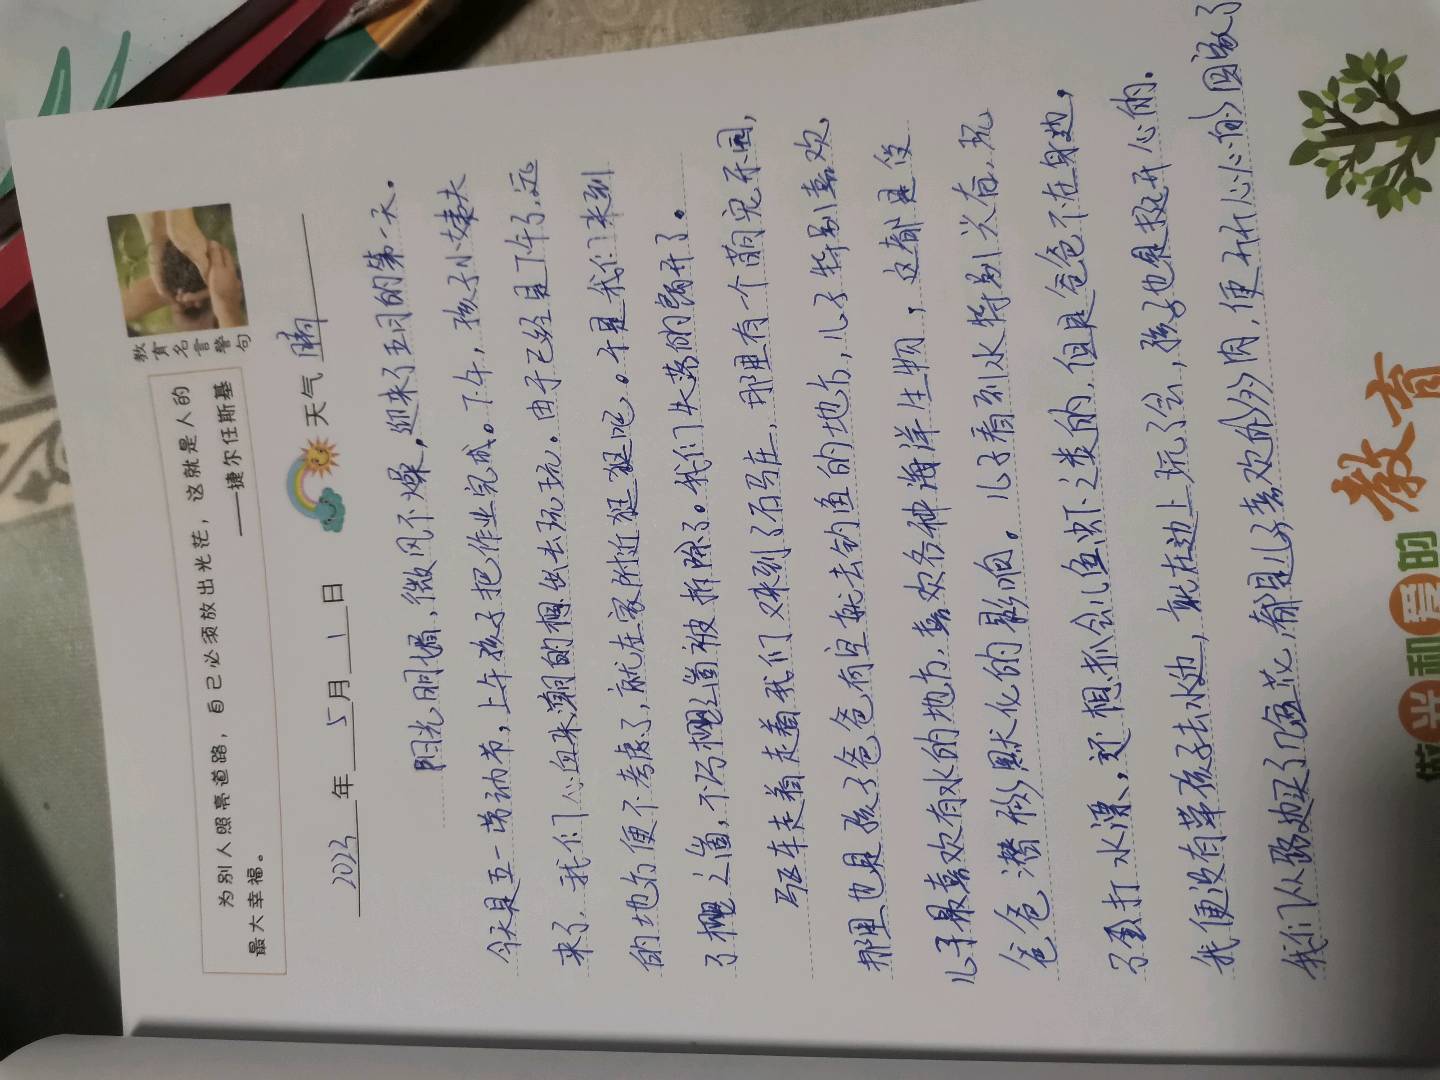 教育名言警句
为别人照亮道路，自己必须放出光芒，这就是人的
最大幸福。
——捷尔任斯基
2023年5月1日
天气 晴
阳光明媚，微风不燥，迎来了五月的第一天。
今天是五一劳动节，上午孩子把作业完成。下午，孩子小姨夫
来了，我们心血来潮的想出去玩玩。由于已经是下午了，远
的地方便不考虑了，就在家附近逛逛吧。于是我们来到
了樱之道，不巧樱之道被拆除了。我们失落的离开了。
驱车走着走着我们又来到了石马在，那里有个萌宠乐园，
那里也是孩子爸爸有空就去钓鱼的地方，儿子特别喜欢，
儿子最喜欢有水的地方，喜欢各种海洋生物，这都是受
爸爸潜移默化的影响。儿子看到水特别兴奋，玩
了会打水漂，还想抓会儿鱼虾之类的，但是爸爸不在身边，
我便没有带孩子去水边，就在边上玩了会，孩子也是挺开心的。
我们从路边买了几盆花，都是儿子喜欢的多肉，便开开心心的回家了
做光和爱的教育